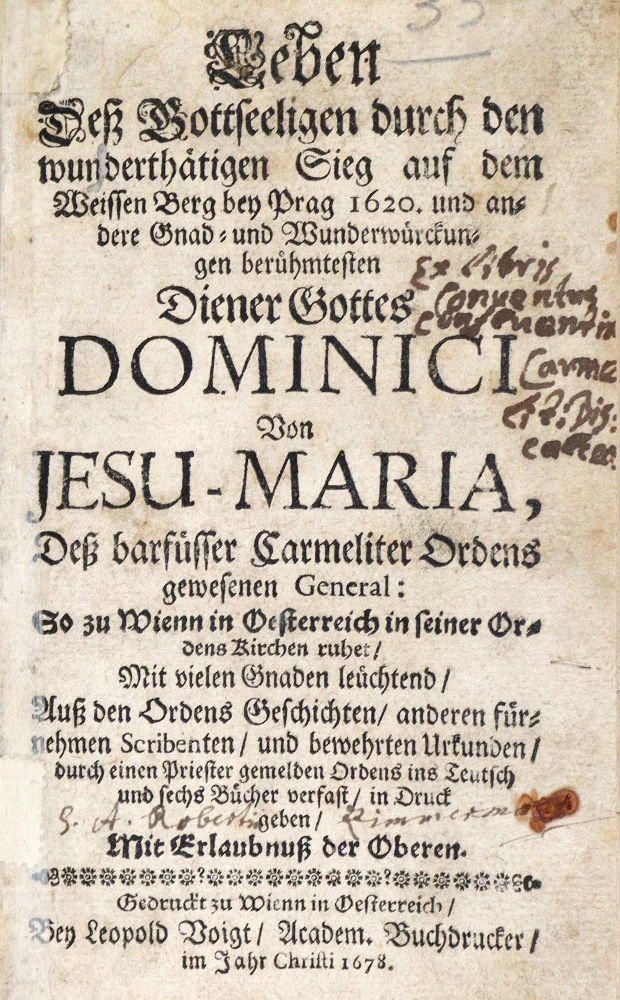 Leben
Deß Gottseeligen durch den
wunderthätigen Sieg auf dem
Weissen Berg bey Prag 1620. und an-
dere Gnad- und Wunderwürckun-
gen berühmtesten
Diener Gottes
DOMINICI
Von
JESU-MARIA,
Deß barfüsser Carmeliter Ordens
gewesenen General:
So zu Wienn in Oesterreich in seiner Or-
dens Kirchen ruhet/
Mit vielen Gnaden leüchtend/
Auß den Ordens Geschichten/ anderen für-
nehmen Scribenten/ und bewehrten Urkunden/
durch einen Priester gemelden Ordens ins Teutsch
und sechs Bücher verfast/ in Druck
geben/
Mit Erlaubnuß der Oberen.
Gedruckt zu Wienn in Oesterreich/
Bey Leopold Voigt/ Academ. Buchdrucker/
im Jahr Christi 1678.
Ex libris
Conventus
Carme